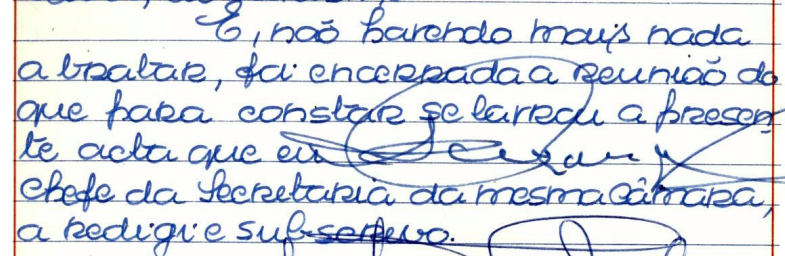 E, não havendo mais nada
a tratar, foi encerrada a reunião do
que para constar se lavrou a presen
te acta que eu
chefe da Secretaria da mesma Câmara,
a redigi e subscrevo.